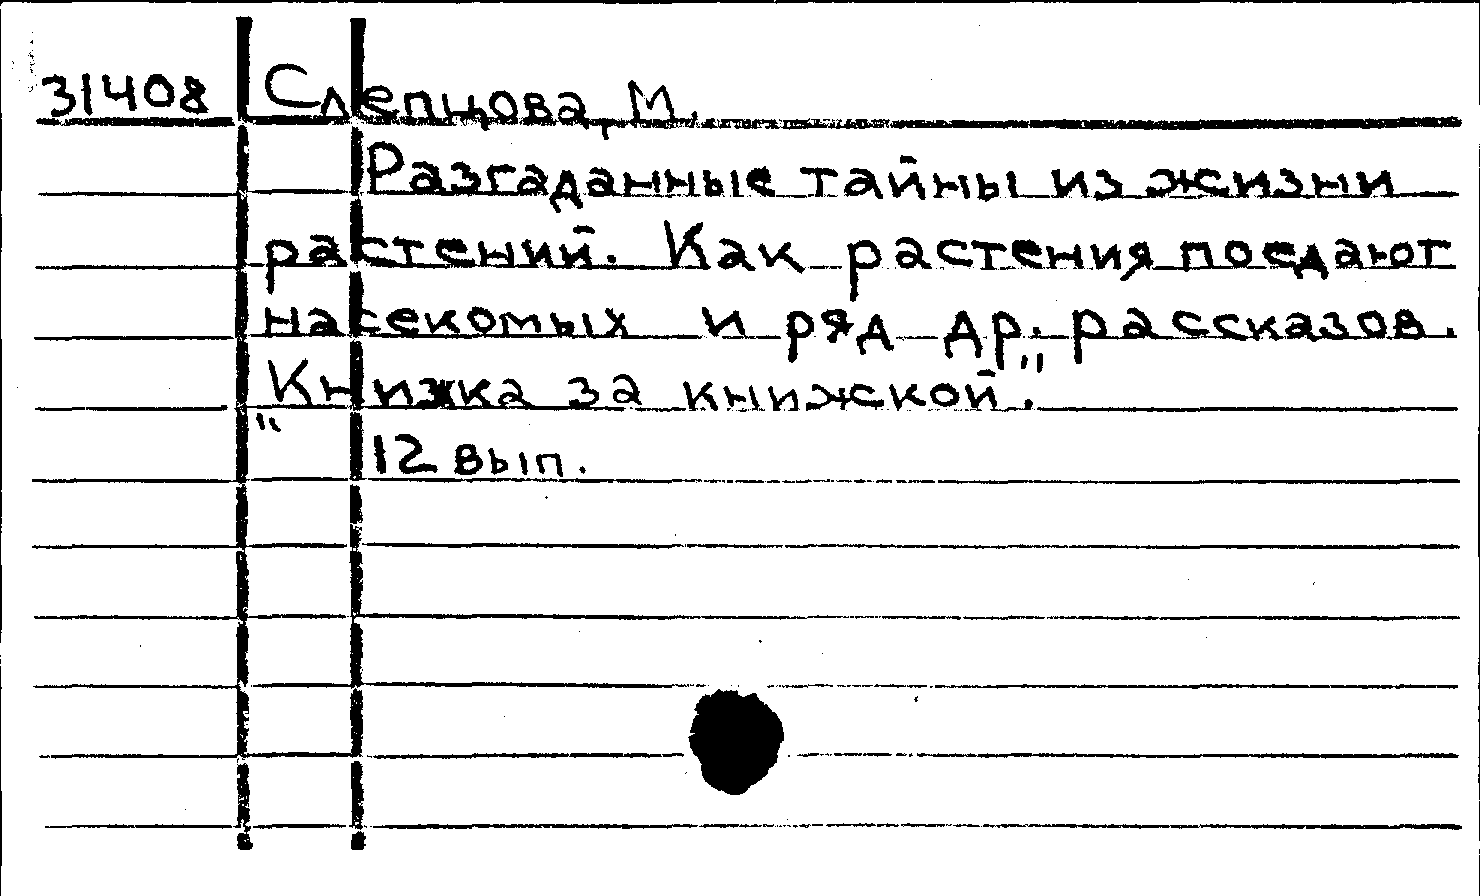 31408 Слепцова, М.
Разгаданные тайны из жизни
растений. Как растения поедают
насекомых и ряд др. рассказов.
"Книжка за книжкой".
12 вып.